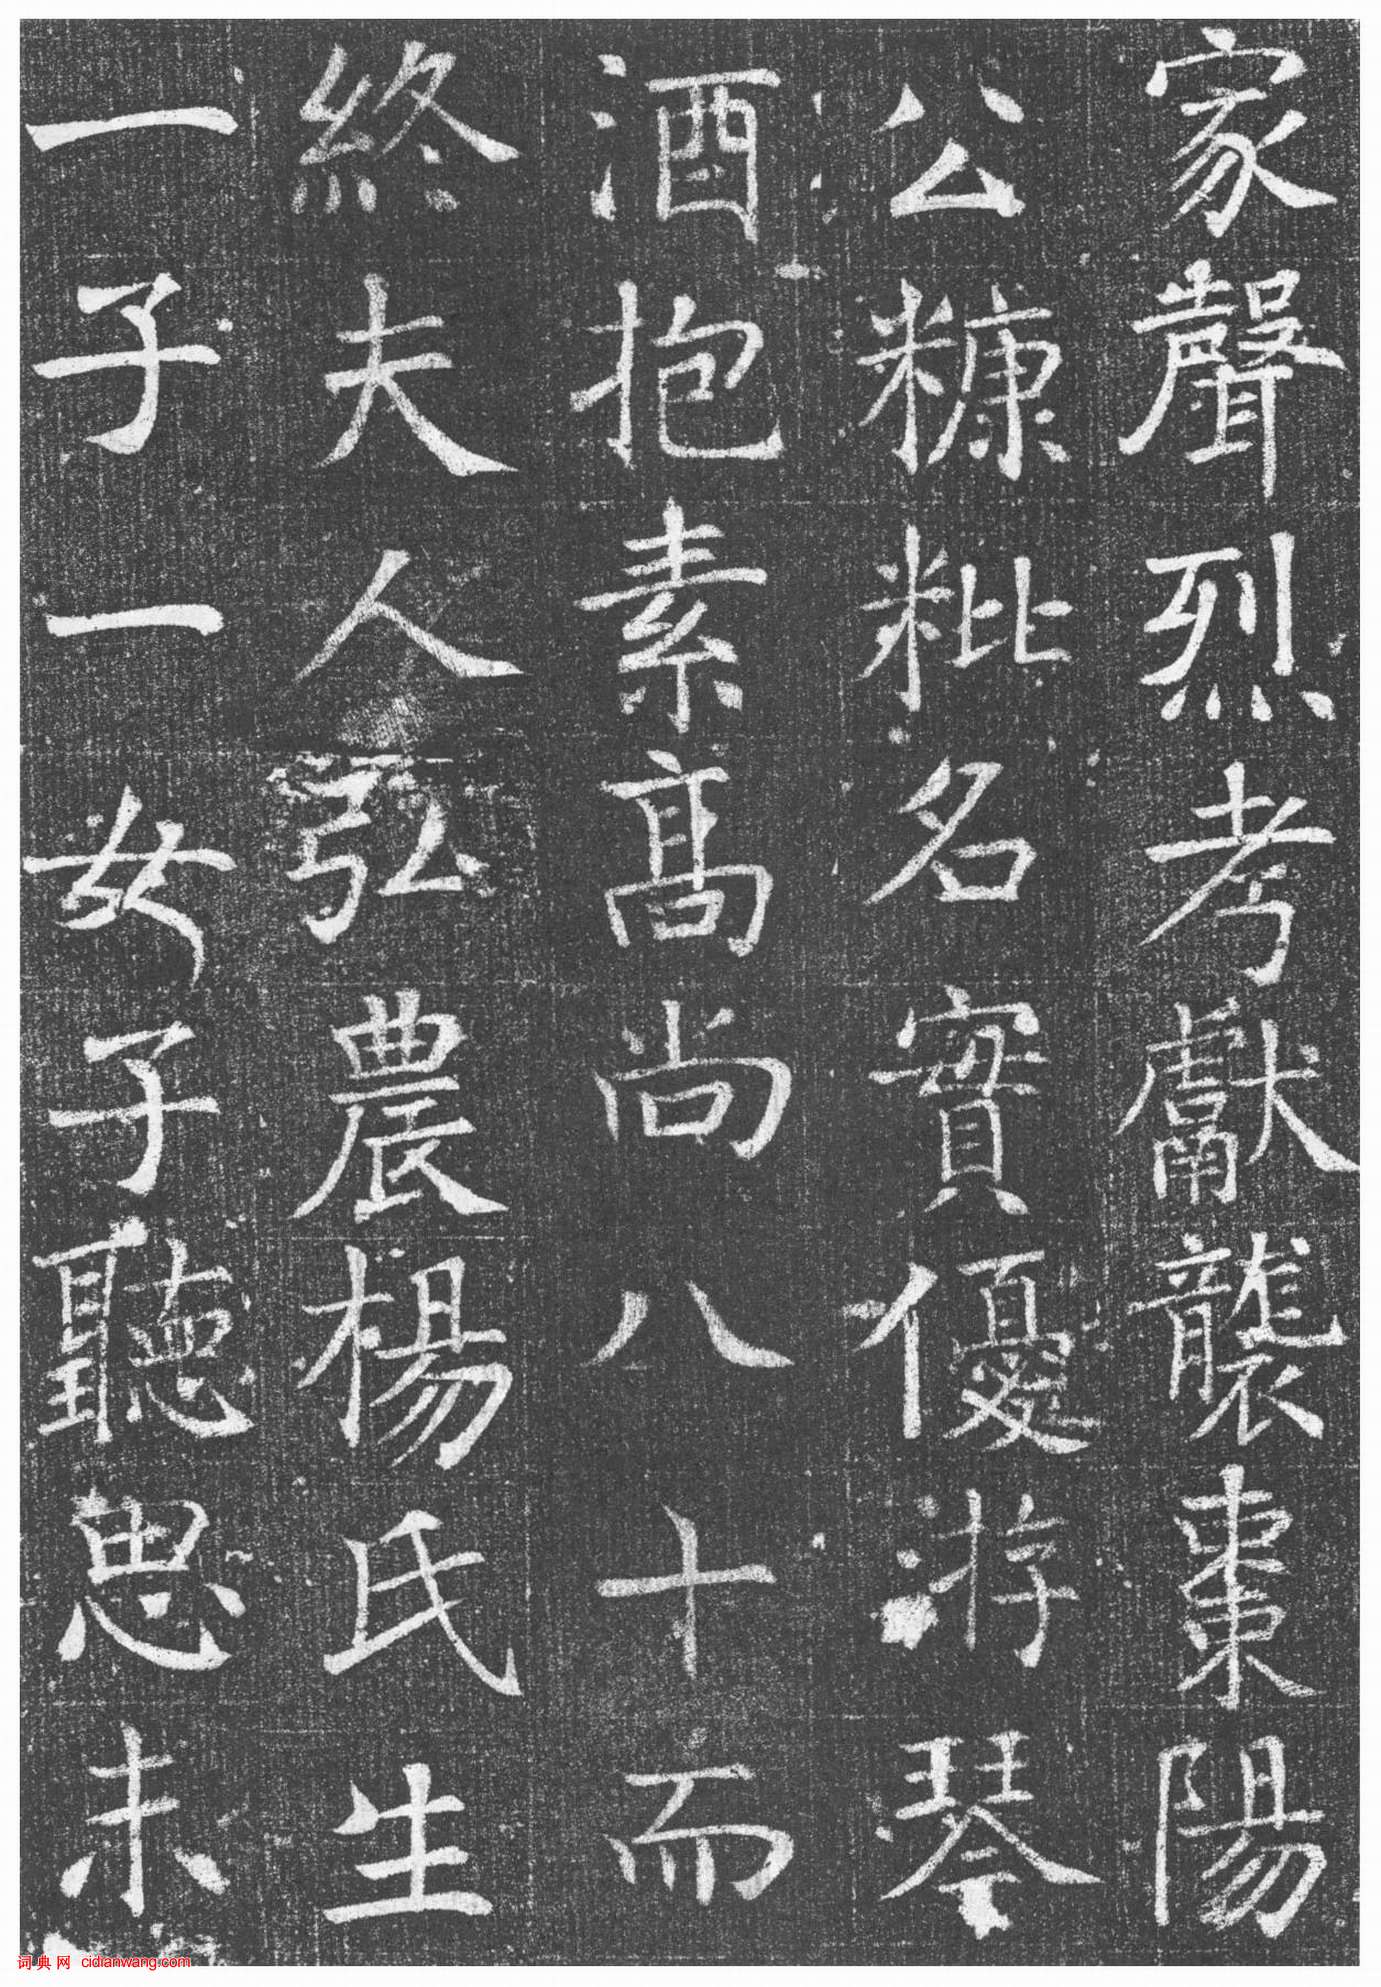 家聲烈考獻襲棗陽
公糠粃名實優游琴
酒抱素高尚八十而
終夫人弘農楊氏生
一子一女子聽思未
词典网 cidianwang.com